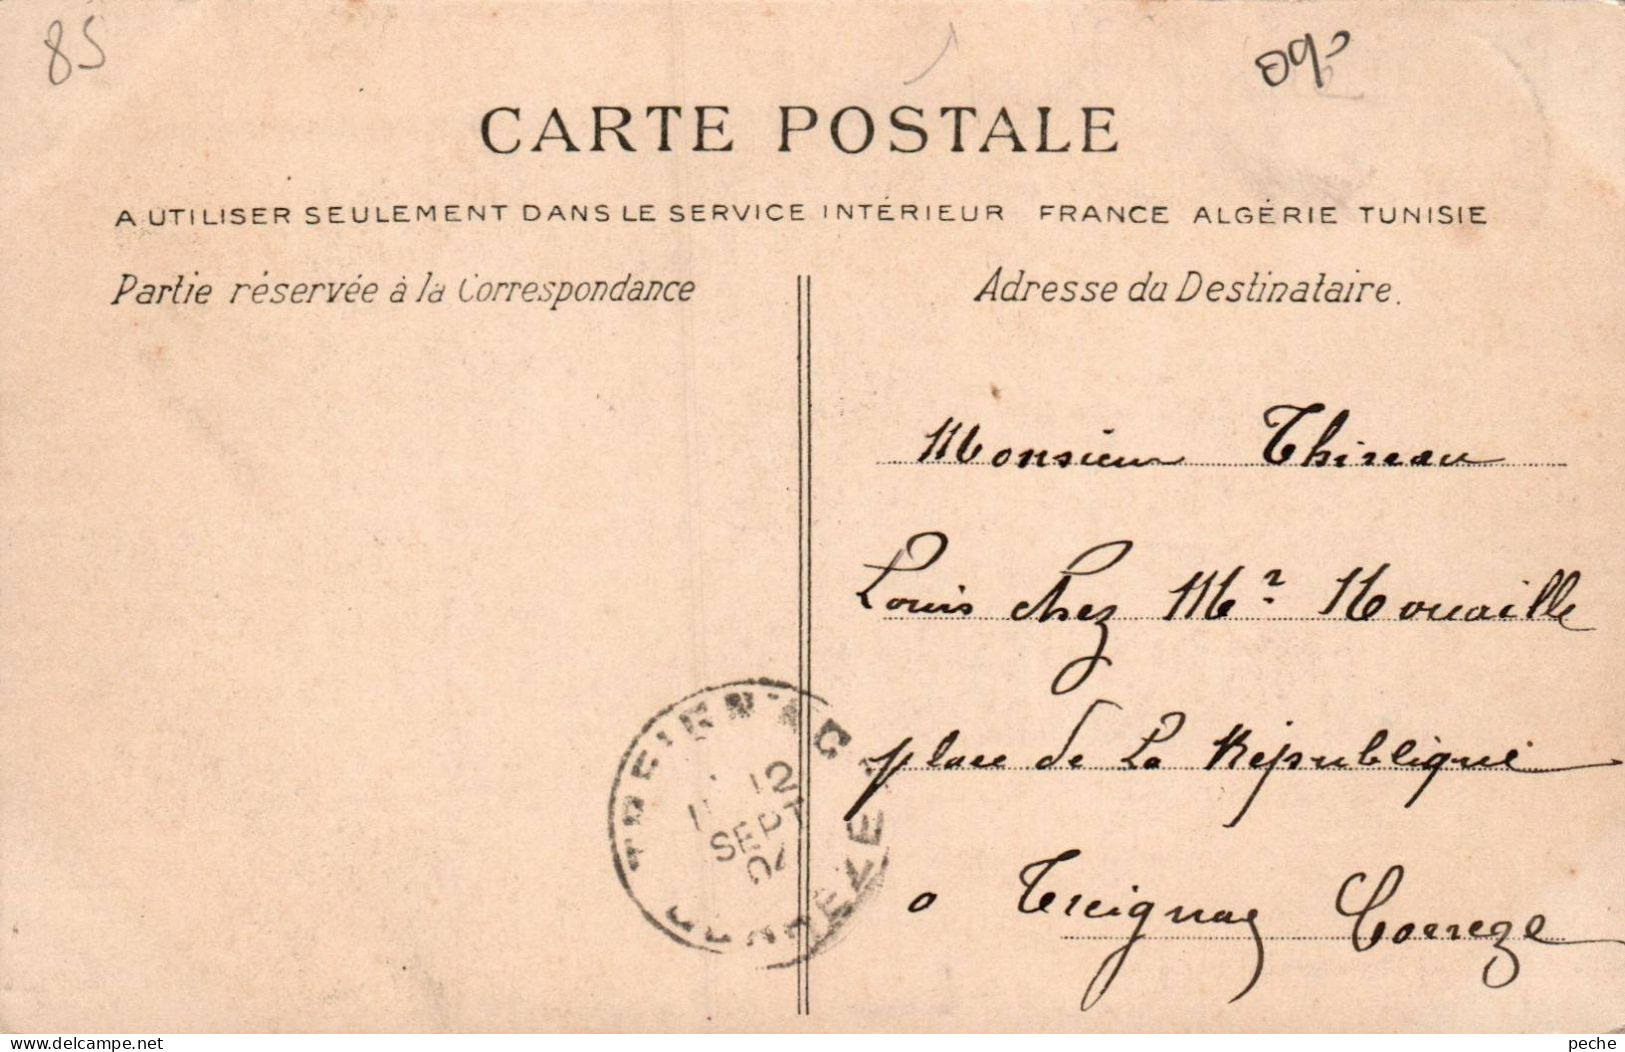 85
CARTE POSTALE
A UTILISER SEULEMENT DANS LE SERVICE INTÉRIEUR FRANCE ALGÉRIE TUNISIE
Partie réservée à la Correspondance
Adresse du Destinataire.
Monsieur Thireau
Louis chez Mr Nouaille
place de La République
a Treignac Correze
TREIGNAC
12
SEPT
04
CORREZE
delcampe.net
peche